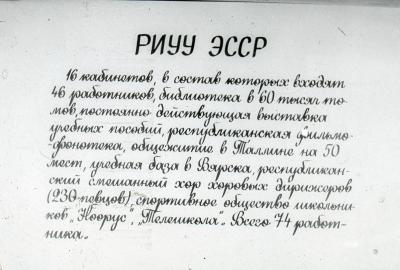 РИУУ ЭССР
16 кабинетов, в состав которых входят
46 работников, библиотека в 60 тысяч то-
мов, постоянно действующая выставка
учебных пособий, республиканская фильмо-
фонотека, общежитие в Таллине на 50
мест, учебная база в Вярска, республикан-
ский смешанный хор хоровых дирижеров
(230 певцов), спортивное общество школьни-
ков „Ноорус", „Телешкола". Всего 74 работ-
ника.